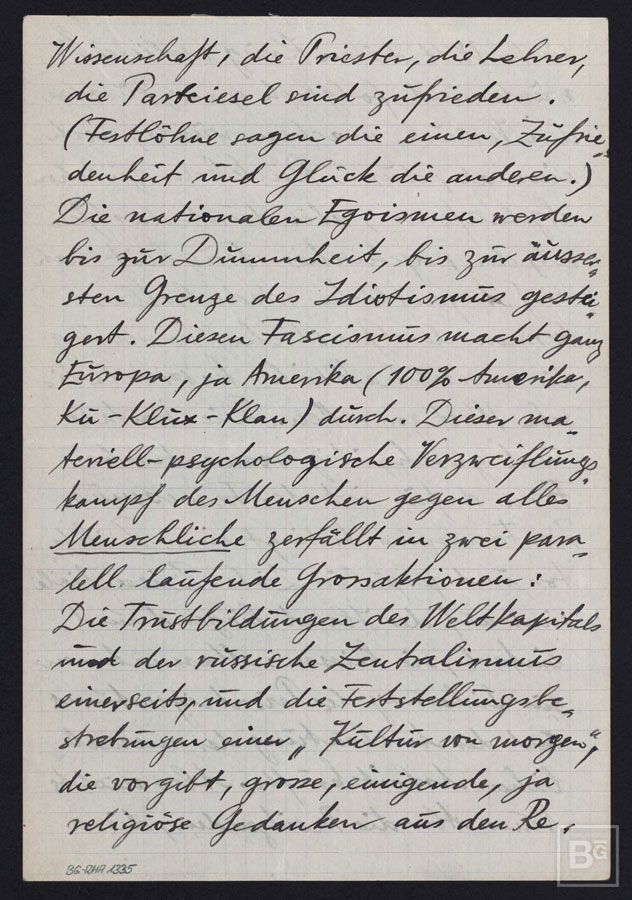 Wissenschaft, die Priester, die Lehrer,
die Parteiesel sind zufrieden.
(Festlöhne sagen die einen, Zufrie-
denheit und Glück die anderen.)
Die nationalen Egoismen werden
bis zur Dummheit, bis zur äusser-
sten Grenze des Idiotismus gestei-
gert. Diesen Fascismus macht ganz
Europa, ja Amerika (100% Amerika,
Ku-Klux-Klan) durch. Dieser ma-
teriell-psychologische Verzweiflungs-
kampf des Menschen gegen alles
Menschliche zerfällt in zwei para-
lell laufende Grossaktionen:
Die Trustbildungen des Weltkapitals
und der russische Zentralismus
einerseits, und die Feststellungsbe-
strebungen einer "Kultur von morgen",
die vorgibt, grosse, einigende, ja
religiöse Gedanken aus den Re-
BG-RHA 1335
BG